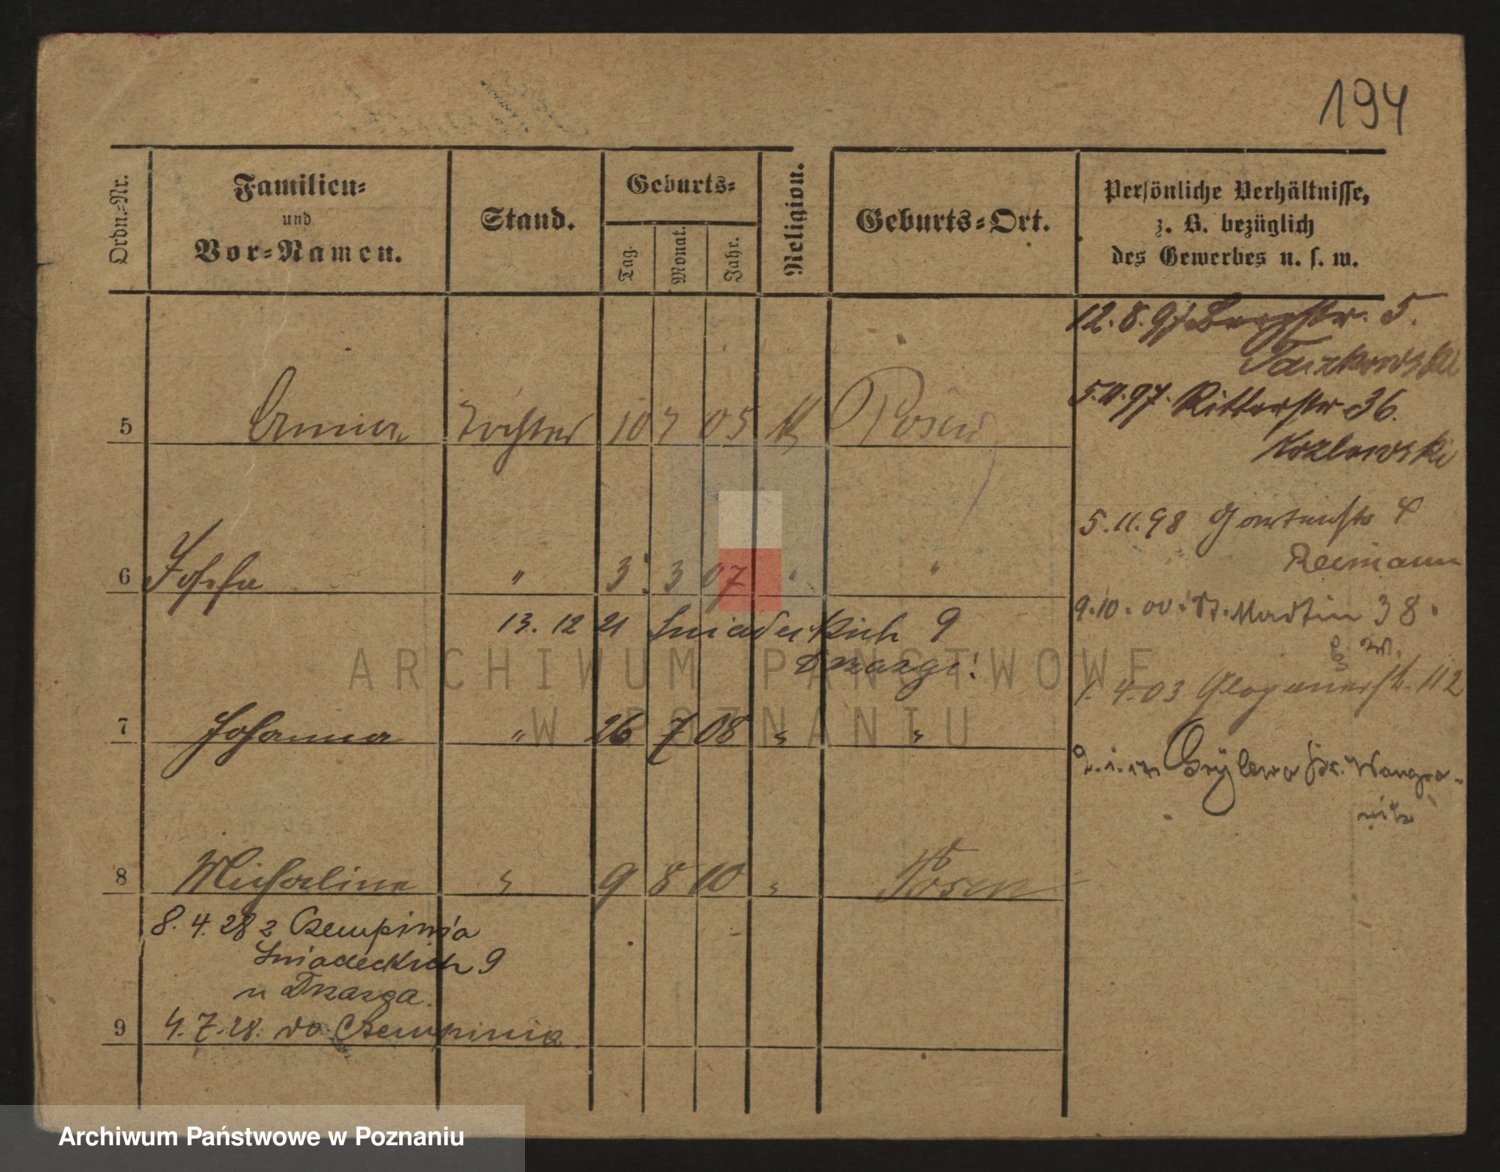 194
Ordn.-Nr.
Familien-
und
Vor-Namen.
Stand.
Geburts-
Tag.
Monat.
Jahr.
Religion.
Geburts-Ort.
Persönliche Verhältnisse,
z. B. bezüglich
des Gewerbes u. s. w.
12.8.97 Bergstr. 5.
Taczkowski
5.11.97. Ritterstr 36.
Kozlowski
5 Anna Tochter 10 7 05 Posen
5.11.98 Gartenstr
Reimann
6 Josefa " 3. 3 07 " "
9.10.00. St. Martin 38.
13. 12 21 Sniadeckich 9
Dzarga!
1.4.03 Glogauerstr. 112
7 Johanna " 26 7 08 " "
Wongro-
witz
8 Michalina " 9 8 10 " Posen
8. 4. 28 z Czempinia
Sniadeckich 9
u Dzarga
9 4. 7. 28. do Czempinia
ARCHIWUM PAŃSTWOWE
W POZNANIU
Archiwum Państwowe w Poznaniu